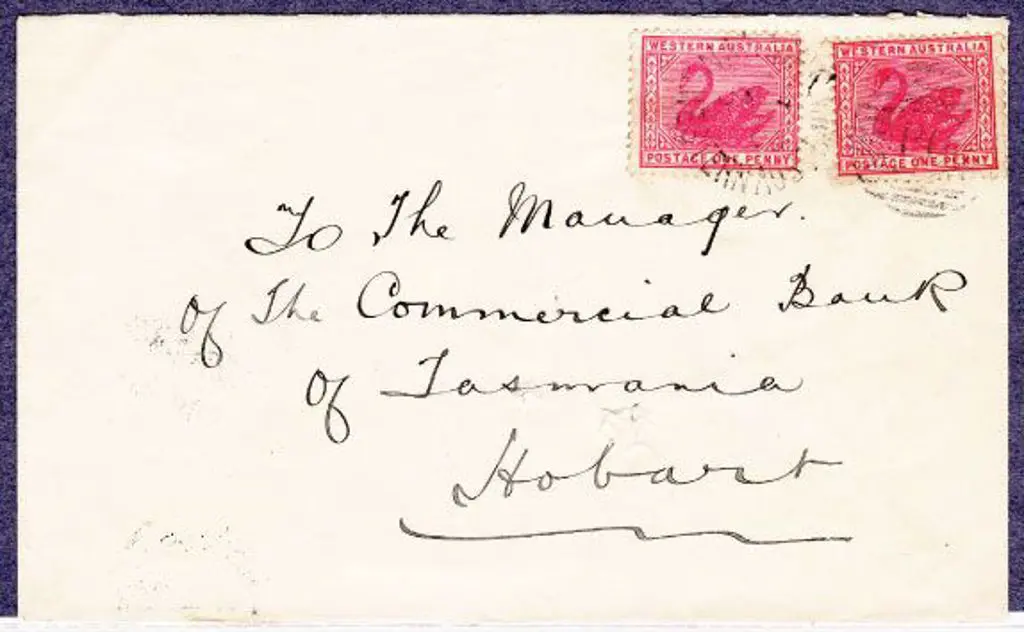 WESTERN AUSTRALIA
POSTAGE ONE PENNY
WESTERN AUSTRALIA
POSTAGE ONE PENNY
To The Manager.
of The Commercial Bank
of Tasmania
Hobart